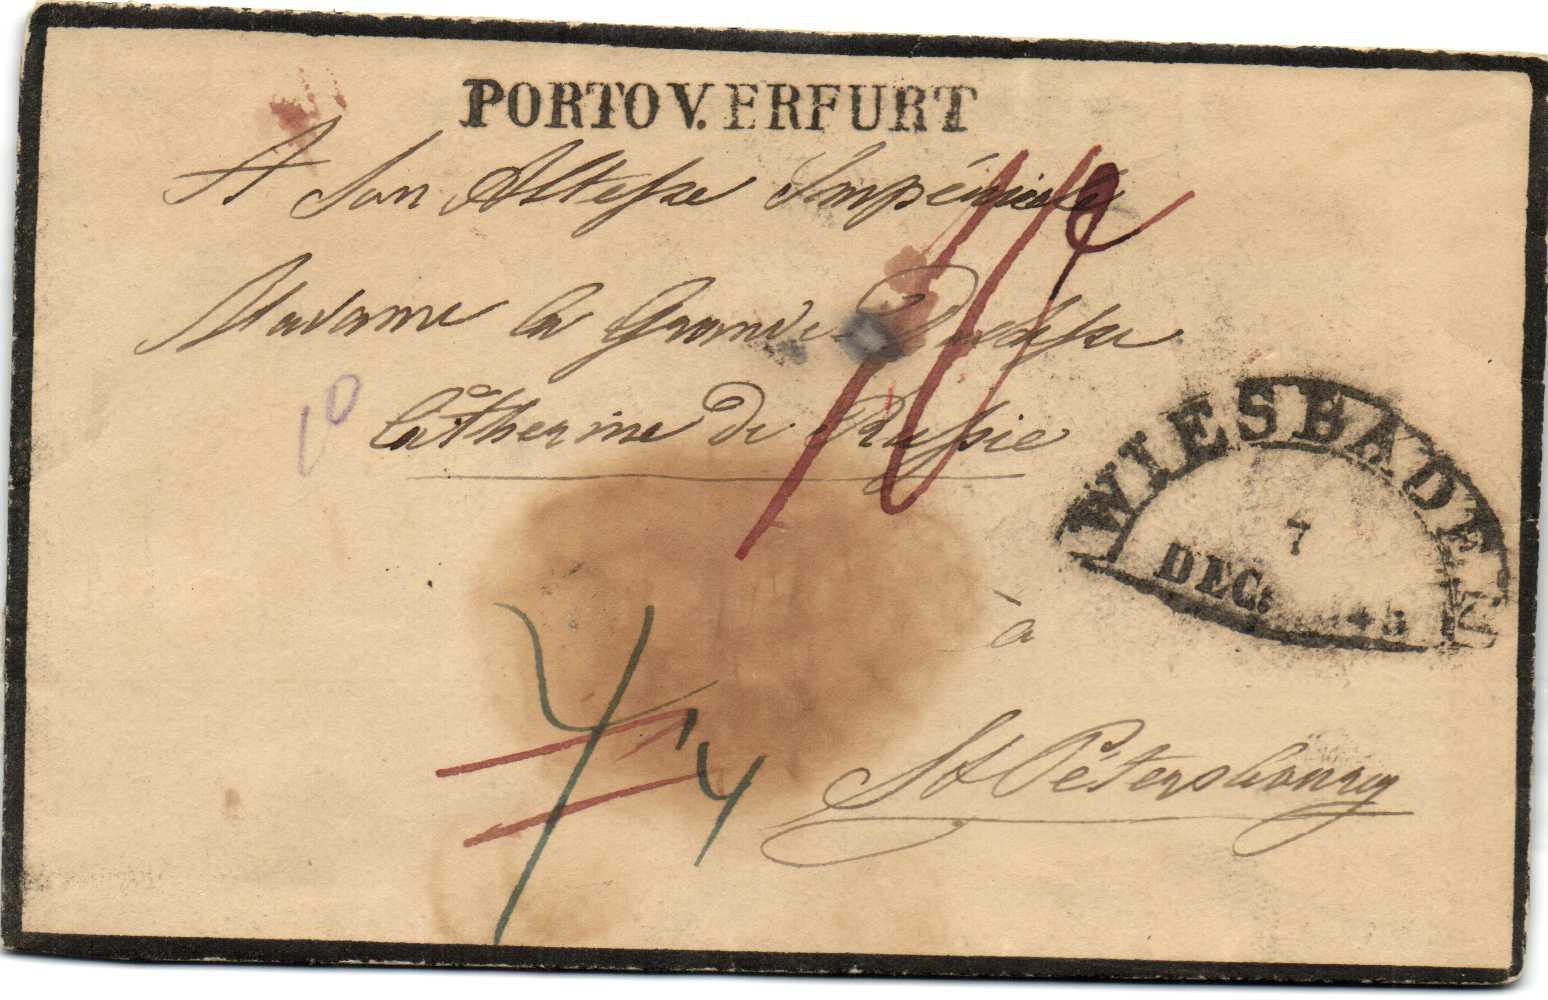 PORTO V. ERFURT
A Son Altesse Impériale
Madame la Grande Duchesse
Catherine de Russie
10
WIESBADEN
7
DEC:
à
St Pétersbourg